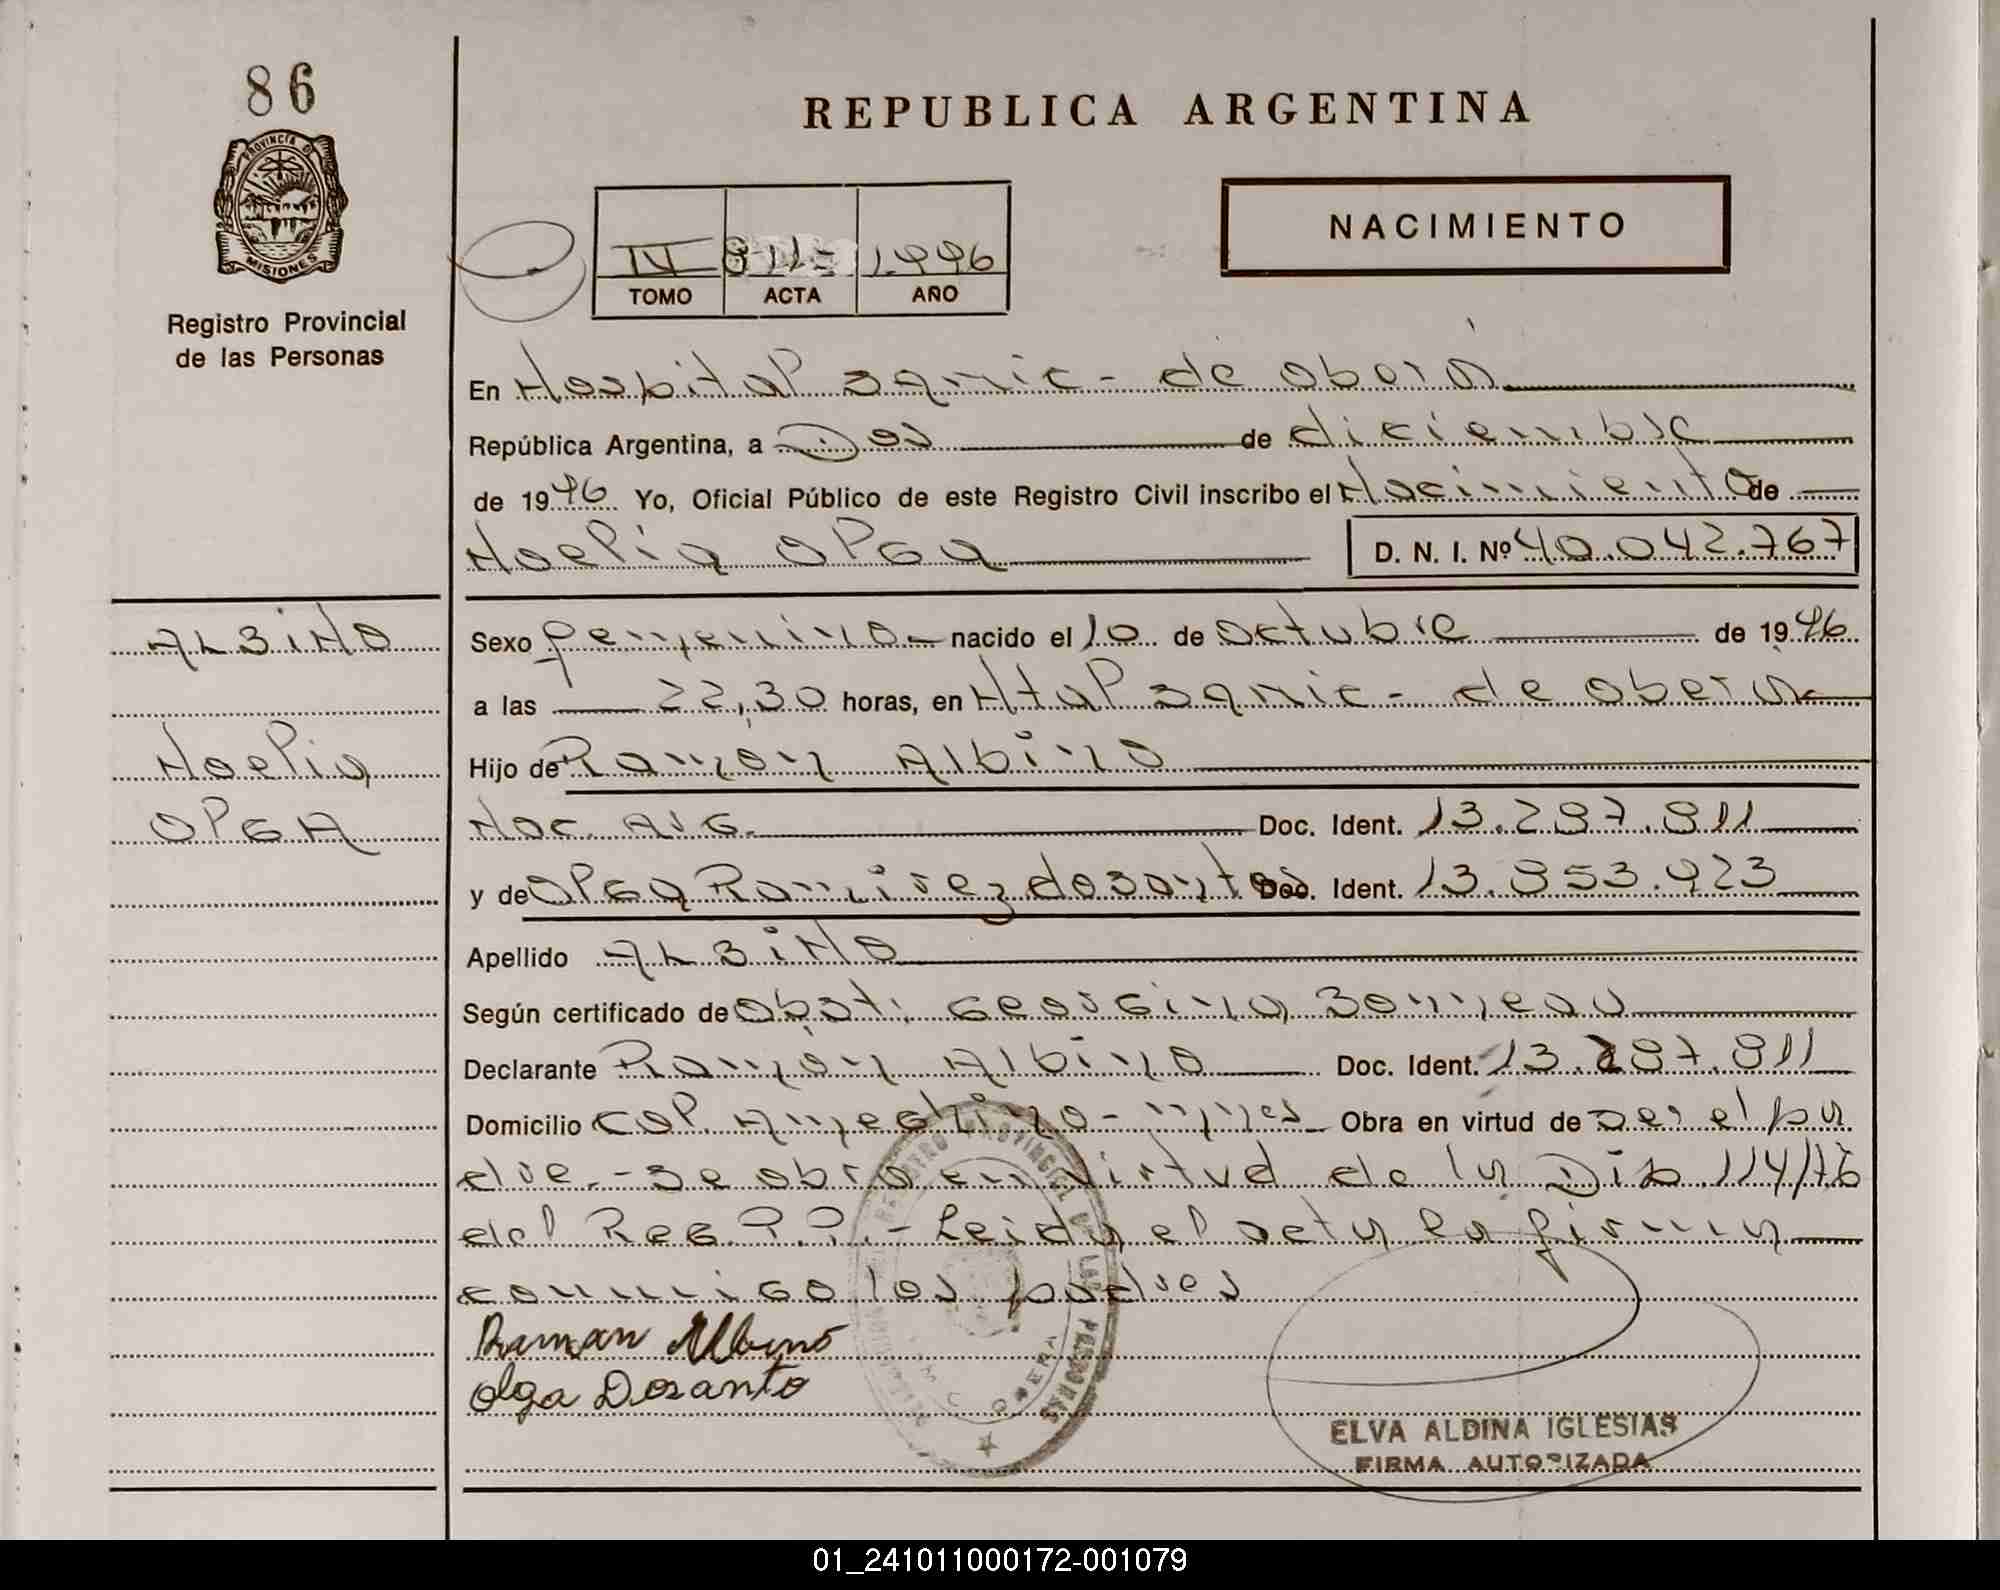 86
PROVINCIA D
MISIONES
Registro Provincial
de las Personas
REPUBLICA ARGENTINA
NACIMIENTO
IV 811- 1996
TOMO ACTA AÑO
En Hospital Samic - de oberá
República Argentina, a Dos de diciembre
de 1996 Yo, Oficial Público de este Registro Civil inscribo el Nacimiento de
Noelia Olga D. N. I. Nº 40.042.767
ALBiNO
Noelia
OlGA
Sexo femenino nacido el 10 de Octubre de 1996
a las 22,30 horas, en Htal Samic - de oberá
Hijo de Ramón Albino
Nac. Arg. Doc. Ident. 13.297.811
y de Olga Ramirez dosantos Doc. Ident. 13.853.923
Apellido ALBiNO
Según certificado de Obst. Georgina
Declarante Ramón Albino Doc. Ident. 13.297.811
Domicilio Col. Ameghino - Mnes Obra en virtud de ser el pa
dre.- Se obra en virtud de la Dis. 114/76
del Reg. P.P. - Leida el acta la firman
conmigo los padres
Raman Albino
Olga Dosanto
REGISTRO PROVINCIAL DE LAS PERSONAS
OBERA
ELVA ALDINA IGLESIAS
FIRMA AUTORIZADA
01_241011000172-001079